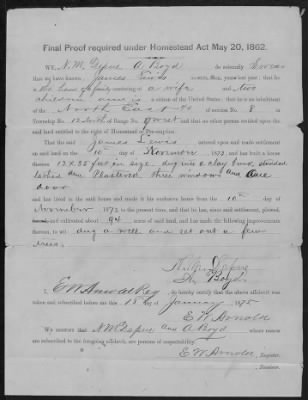 Final Proof required under Homestead Act May 20, 1862.
WE, N. M. Depue A. Boyd do solemnly Swear
that we have known James Lewis for years last past; that he
is the head of family consisting of a wife and two
children and is a citizen of the United States; that he is an inhabitant
of the North East 1/4 of section No. 8 in
Township No. 12 South of Range No. 9 West and that no other person resided upon the
said land entitled to the right of Homestead or Pre-emption.
That the said James Lewis entered upon and made settlement
on said land on the 10th day of November 1872, and has built a house
thereon 12 x 28 feet in size
lathed and Plastered three windows and One
door
and has lived in the said house and made it his exclusive home from the 10th day of
November 1872 to the present time, and that he has, since said settlement, plowed,
and cultivated about acres of said land, and has made the following improvements
thereon, to wit: dug a well and set out a few
trees.
N. M. Depue
A. Boyd
I, E W Arnold Reg do hereby certify that the above affidavit was
taken and subscribed before me this 15 day of January 1875
E W Arnold
WE CERTIFY that N M Depue and A Boyd whose names
are subscribed to the foregoing affidavit, are persons of respectability.
E W Arnold, Register.
Receiver.